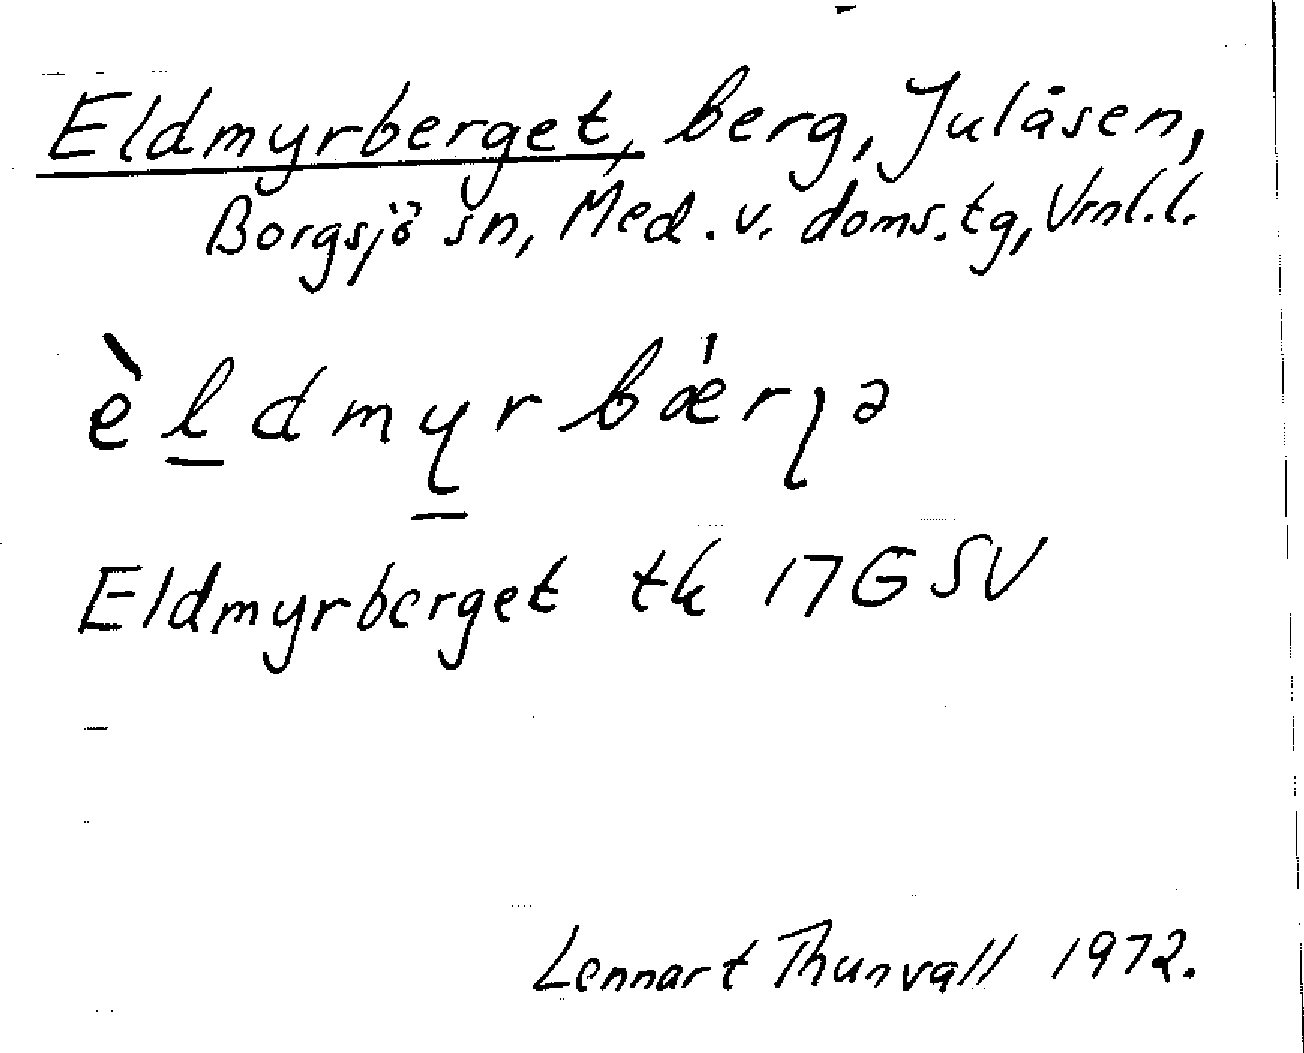 Eldmyrberget, berg, Julåsen,
Borgsjö sn, Med. v. doms. tg, Vrnl. l.
èl̲dmy̲rbǽrꞇə
Eldmyrberget tk 17G SV
Lennart Thunvall 1972.